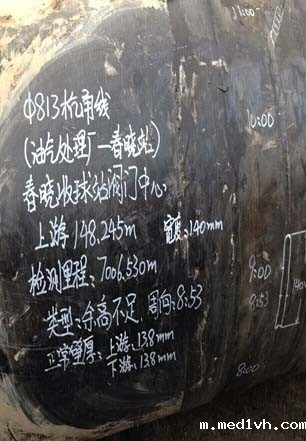 11:00
Φ813杭甬线
10:00
(油气处理厂—春晓站)
春晓收球站阀门中心:
上游148.245m 宽度:140mm
检测里程:7006.530m
9:00
9:53
类型:余高不足 周向:8:53
正常壁厚:上游:13.8mm
下游:13.8mm
8:00
m.med1vh.com